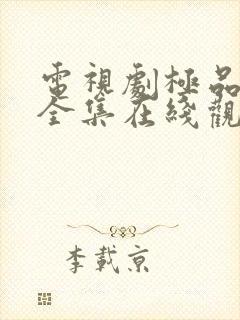 電視劇極品
全集在綫觀
李載京